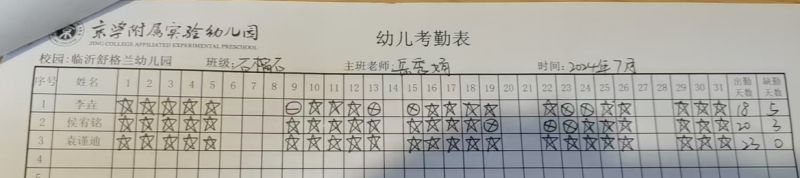 京学附属实验幼儿园
JING COLLEGE AFFILIATED EXPERIMENTAL PRESCHOOL
幼儿考勤表
校园:临沂舒格兰幼儿园 班级:石榴石 主班老师: 时间:2024年7月
序号 姓名 1 2 3 4 5 6 7 8 9 10 11 12 13 14 15 16 17 18 19 20 21 22 23 24 25 26 27 28 29 30 31 出勤天数 缺勤天数
1 李垚 18 5
2 侯宥铭 20 3
3 袁谨迪 23 0
4
5